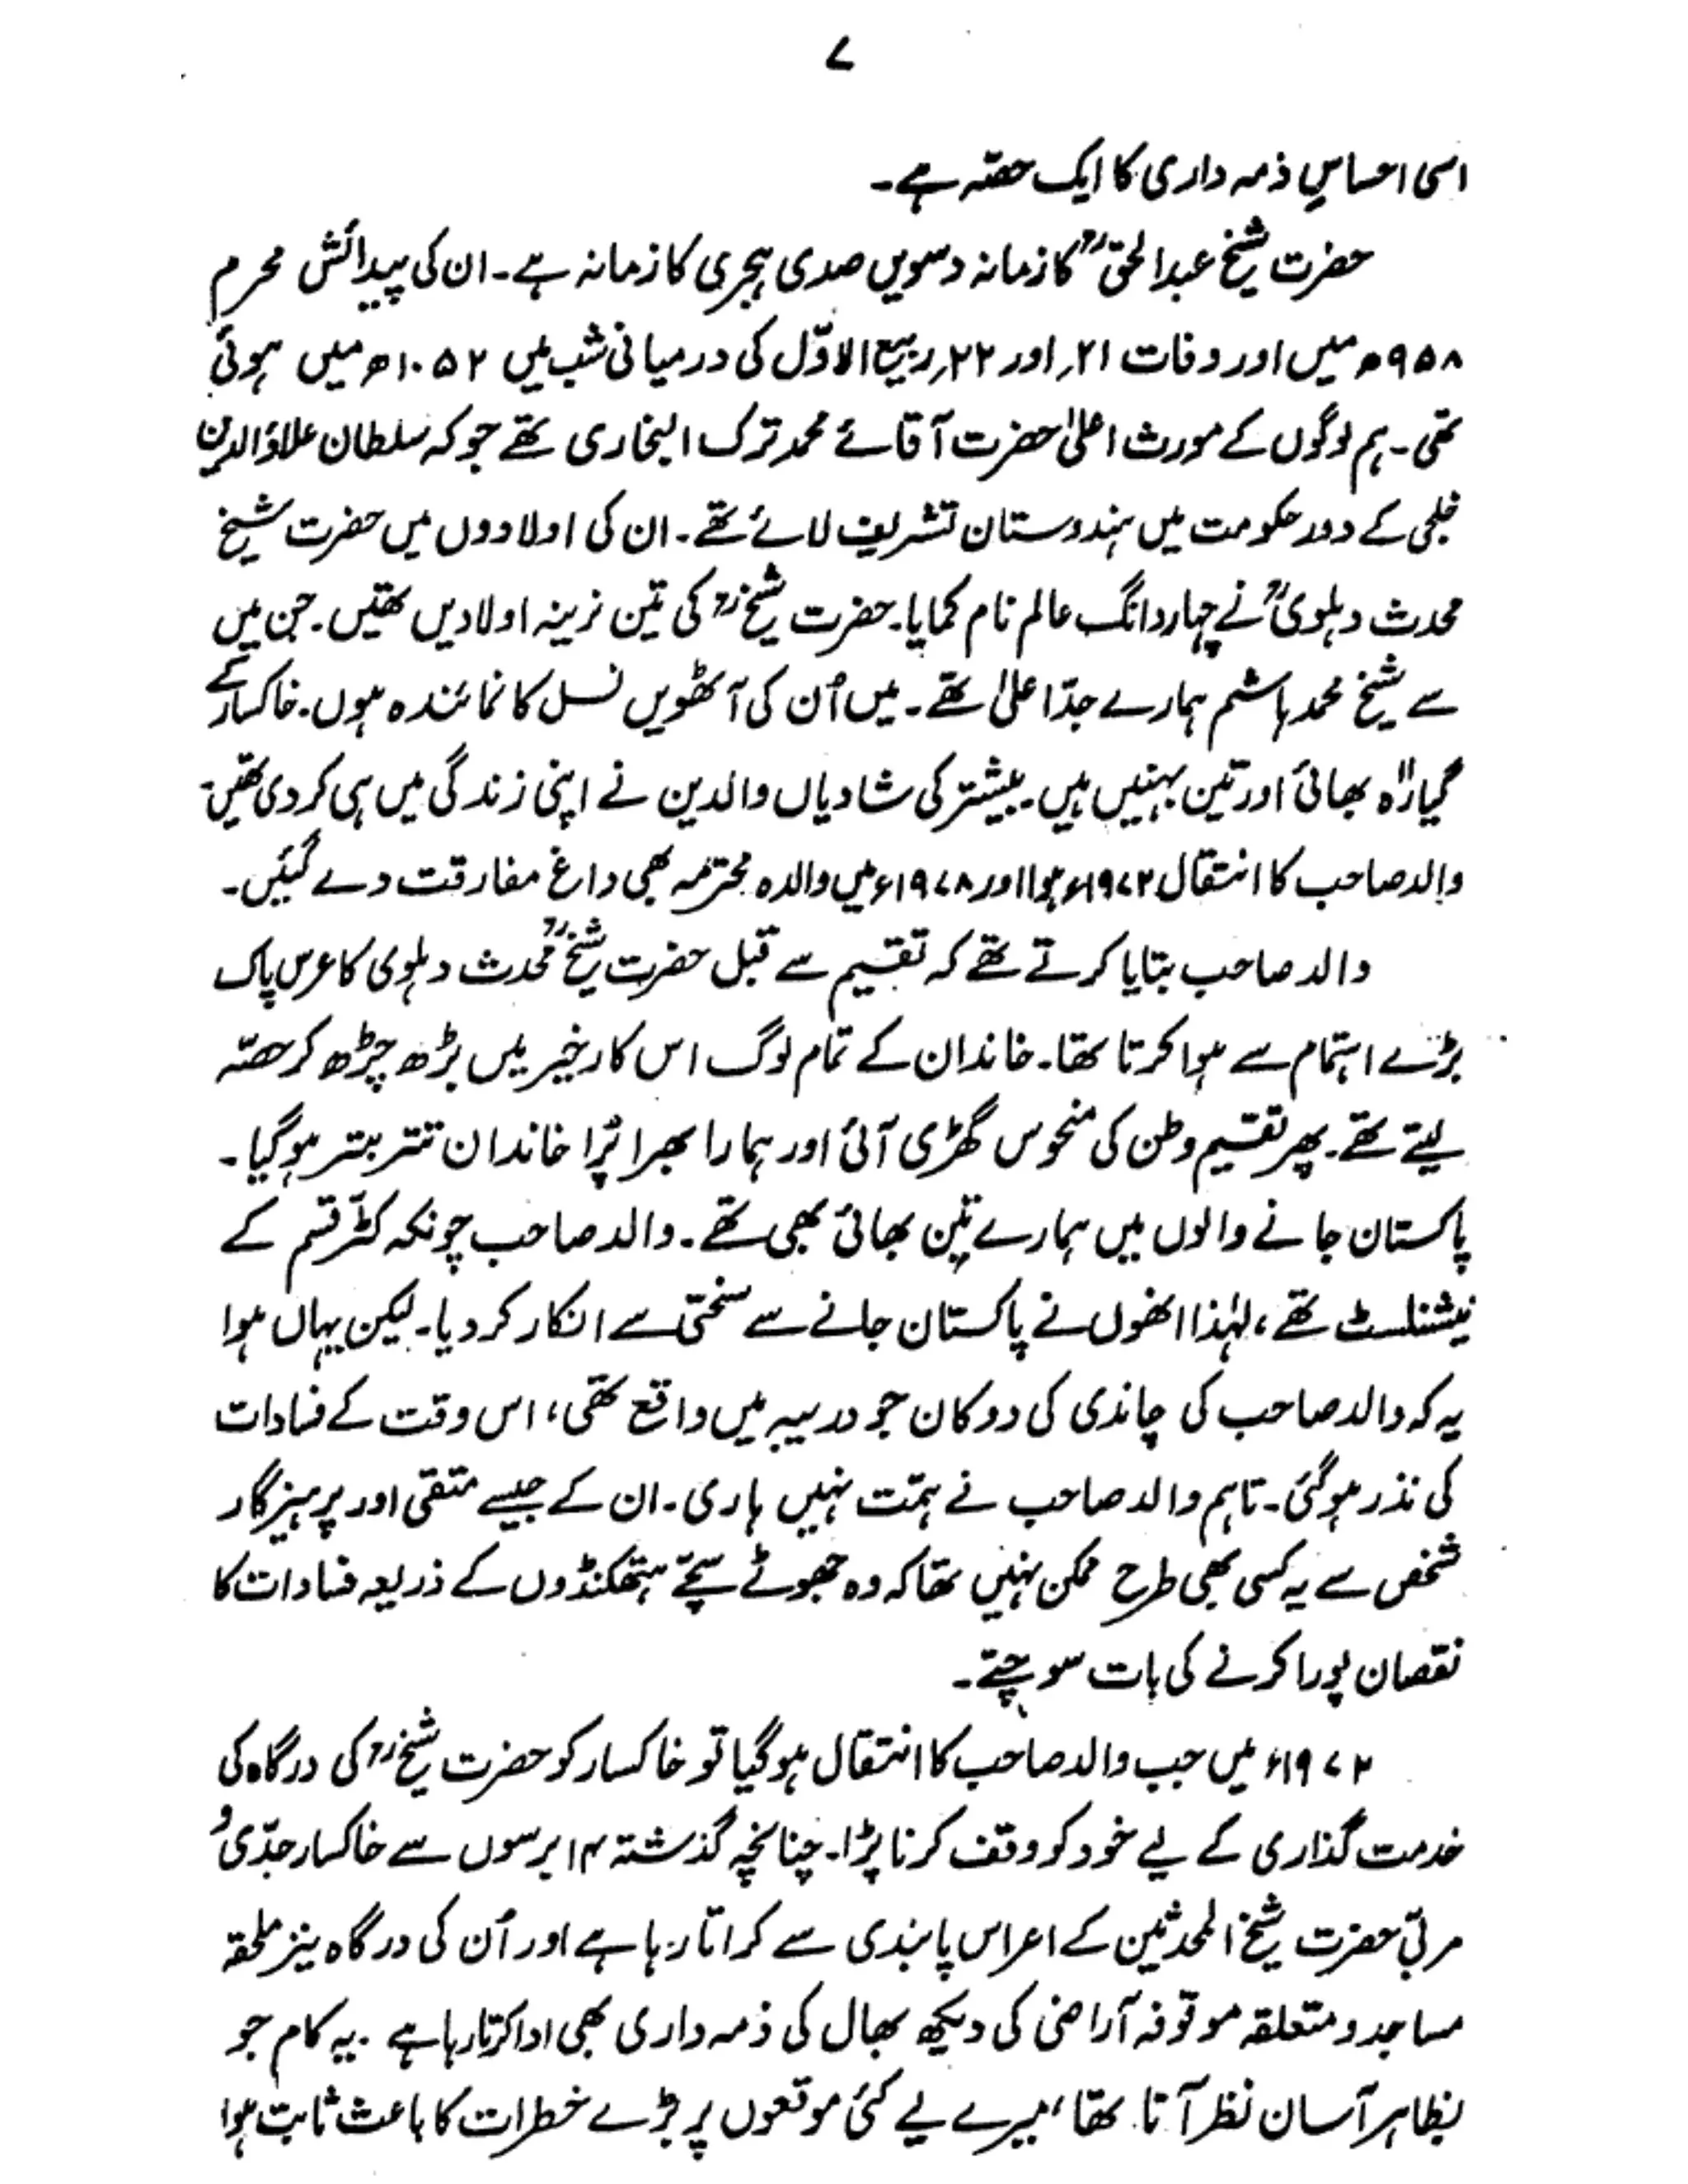 ۷
اسی احساسِ ذمہ داری کا ایک حصّہ ہے۔
حضرت شیخ عبدالحقؒ کا زمانہ دسویں صدی ہجری کا زمانہ ہے۔ ان کی پیدائش محرم
۹۵۸ھ میں اور وفات ۲۱؍ اور ۲۲؍ ربیع الاوّل کی درمیانی شب میں ۱۰۵۲ھ میں ہوئی
تھی۔ ہم لوگوں کے مورث اعلیٰ حضرت آقائے محمد ترک البخاری تھے جو کہ سلطان علاؤالدین
خلجی کے دور حکومت میں ہندوستان تشریف لائے تھے۔ ان کی اولادوں میں حضرت شیخ
محدث دہلویؒ نے چہار دانگ عالم نام کمایا۔ حضرت شیخؒ کی تین نرینہ اولادیں تھیں۔ جن میں
سے شیخ محمد ہاشم ہمارے جدّ اعلیٰ تھے۔ میں اُن کی آٹھویں نسل کا نمائندہ ہوں۔ خاکسار کے
گیارہ بھائی اور تین بہنیں ہیں۔ بیشتر کی شادیاں والدین نے اپنی زندگی میں ہی کر دی تھیں۔
والد صاحب کا انتقال ۱۹۷۲ء ہوا اور ۱۹۷۸ء میں والدہ محترمہ بھی داغ مفارقت دے گئیں۔
والد صاحب بتایا کرتے تھے کہ تقسیم سے قبل حضرت شیخؒ محدث دہلوی کا عرس پاک
بڑے اہتمام سے ہوا کرتا تھا۔ خاندان کے تمام لوگ اس کارِ خیر میں بڑھ چڑھ کر حصّہ
لیتے تھے۔ پھر تقسیم وطن کی منحوس گھڑی آئی اور ہمارا بھرا پُرا خاندان تتر بتر ہوگیا۔
پاکستان جانے والوں میں ہمارے تین بھائی بھی تھے۔ والد صاحب چونکہ کٹّر قسم کے
نیشنلسٹ تھے، لہٰذا انھوں نے پاکستان جانے سے سختی سے انکار کر دیا۔ لیکن یہاں ہوا
یہ کہ والد صاحب کی چاندی کی دوکان جو دریبہ میں واقع تھی، اس وقت کے فسادات
کی نذر ہوگئی۔ تاہم والد صاحب نے ہمّت نہیں ہاری۔ ان کے جیسے متقی اور پرہیزگار
شخص سے یہ کسی بھی طرح ممکن نہیں تھا کہ وہ جھوٹے سچّے ہتھکنڈوں کے ذریعہ فسادات کا
نقصان پورا کرنے کی بات سوچتے۔
۱۹۷۲ء میں جب والد صاحب کا انتقال ہوگیا تو خاکسار کو حضرت شیخؒ کی درگاہ کی
خدمت گذاری کے لیے خود کو وقف کرنا پڑا۔ چنانچہ گذشتہ ۱۴ برسوں سے خاکسار جدّی و
مربّی حضرت شیخ المحدثین کے اعراس پابندی سے کراتا رہا ہے اور اُن کی درگاہ نیز ملحقہ
مساجد و متعلقہ موقوفہ آراضی کی دیکھ بھال کی ذمہ داری بھی ادا کرتا رہا ہے۔ یہ کام جو
بظاہر آسان نظر آتا تھا، میرے لیے کئی موقعوں پر بڑے خطرات کا باعث ثابت ہوا